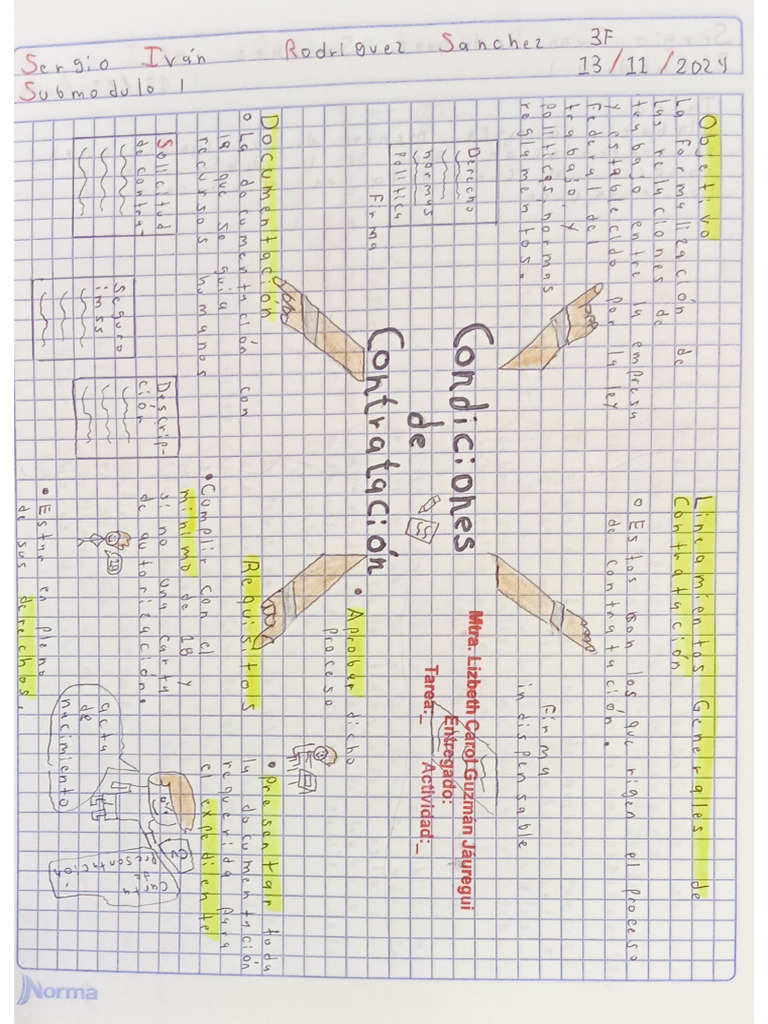 Sergio Iván Rodríguez Sanchez 3F
Submodulo 1 13/11/2024
Objetivo
La formalización de
las relaciones de
trabajo entre la empresa
y establecido por la ley
Federal del
trabajo, y
politicas, normas
reglamentos.
Derecho
normas
Politica
Firma
Condiciones
de
Contratación
Lineamientos Generales de
Contratación
• Estos son los que rigen el proceso
de contratación.
Firma
indispensable
Mtra. Lizbeth Carol Guzmán Jáuregui
Entregado:
Tarea:_ Actividad:_
Documentación
• La documentación con
la que se guia
recursos humanos
Solicitud
de contra-
Seguro
imss
Descrip-
ción
Requisitos
• Aprobar dicho
proceso
• Cumplir con el
mínimo de 18 y
si no una carta
de autorización.
• Estar en pleno
de sus derechos.
• Presentar toda
la documentación
requerida para
el expediente
acta
de
nacimiento
Carta
de
presentación
Norma